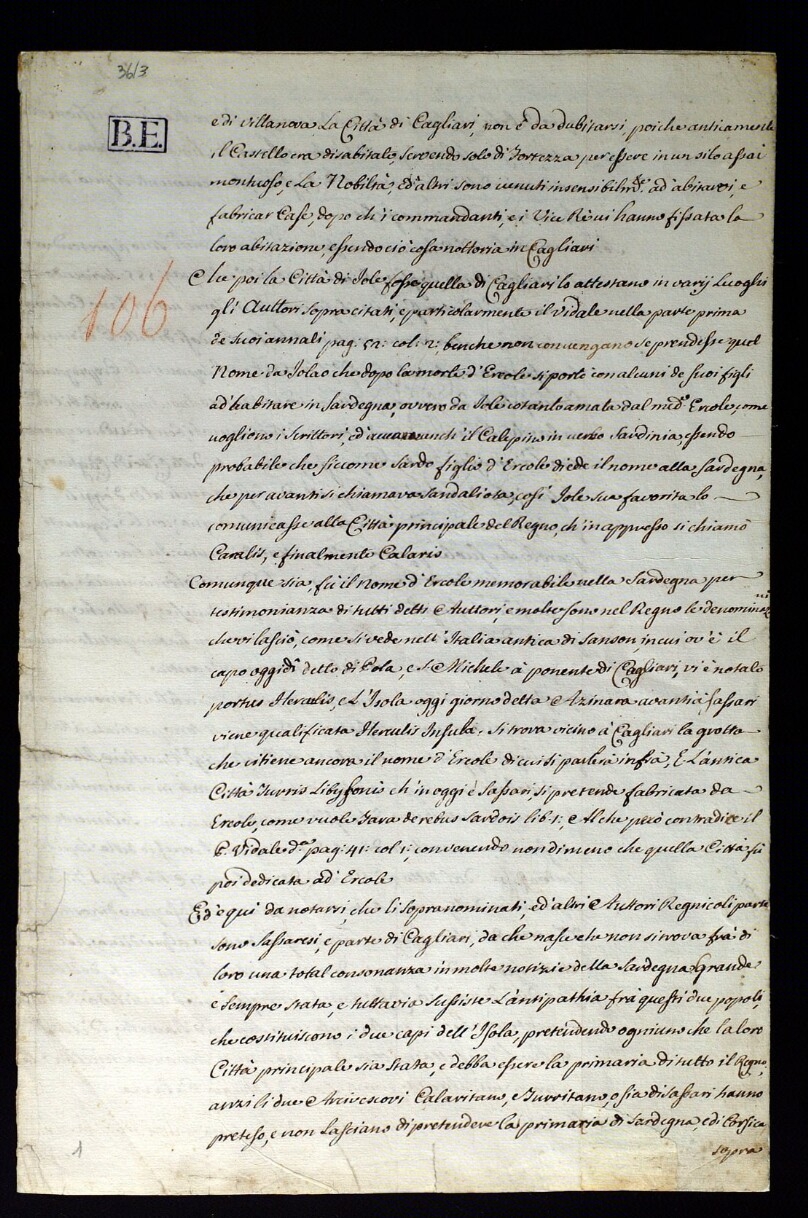 3613
B.E.
106
e di Villanova La Città di Cagliari, non è da dubitarsi, poiche anticamente
il Castello era disabitato, servendo solo di Fortezza per essere in un sito assai
montuoso, e La Nobiltà, ed'altri sono venuti insensibilm.te ad'abitarvi, e
fabricar Case, dopo ch'i commandanti, e i Vice Rè vi hanno fissata la
loro abitazione, essendo ciò cosa nottoria in Cagliari
Che poi la Città di Iole fosse quella di Cagliari lo attestano in varij Luoghi
gl'Auttori sopra citati, e particolarmente il Vidale nella parte prima
de suoi annali pag: 52: col: 2: benche non convengano se prendesse quel
Nome da Jolao che dopo la morte d'Ercole si portò con alcuni de suoi figli
ad'habitare in Sardegna, ovvero da Iole cotanto amata dal med.o Ercole, come
vogliono i scrittori, ed anch'il Calepino in verbo Sardinia, essendo
probabile che siccome Sardo figlio d'Ercole diede il nome alla Sardegna,
che per avanti si chiamava Sandaliota, così Iole sua favorita lo
comunicasse alla Città principale del Regno, ch'in appresso si chiamò
Caralis, e finalmente Calaris
Comunque sia, fù il Nome d'Ercole memorabile nella Sardegna per
testimonianza di tutti detti Auttori, e molte sono nel Regno le denominaz.ni
che vi lasciò, come si vede nell'Italia antica di Sanson, in cui ov'è il
capo oggidì detto di Pola, e S. Michele à ponente di Cagliari, vi è notato
portus Herculis, e L'Isola oggi giorno detta Azinara avanti à Sassari
viene qualificata Herculis Insula. Si trova vicino à Cagliari la grotta
che ritiene ancora il nome d'Ercole di cui si parlerà infrà, E L'antica
Città Turris Libysonis ch'in oggi è Sassari, si pretende fabricata da
Ercole, come vuole Fara de rebus Sardois lib: 1:, Al che però contradice il
P. Vidale d.a pag: 41: col: 1: convenendo nondimeno che quella Città fù
poi dedicata ad'Ercole
Ed'è qui da notarsi, che li sopranominati, ed'altri Auttori Regnicoli parte
sono Sassaresi, e parte di Cagliari, da che nasce che non si trova frà di
loro una total consonanza in molte notizie della Sardegna, Grande
è sempre stata, e tuttavia sussiste L'antipathia frà questi due popoli,
che costituiscono i due capi dell'Isola, pretendendo ogniuno che la loro
Città principale sia stata, e debba essere la primaria di tutto il Regno,
anzi li due Arcivescovi Calaritano, e Turritano, o sia di Sassari hanno
preteso, e non Lasciano di pretendere la primaria di Sardegna, e di Corsica
sopra
1